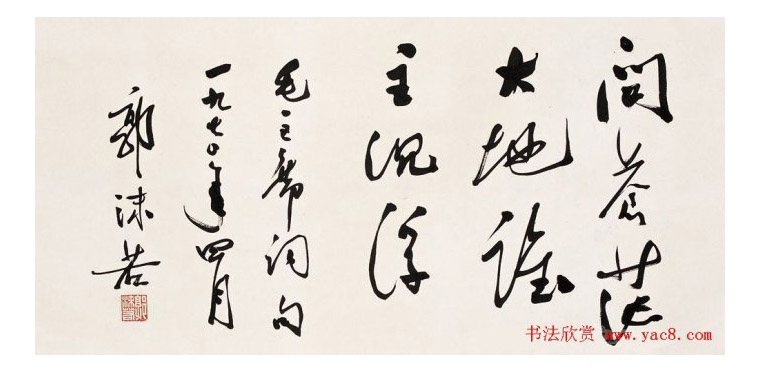 问苍茫
大地谁
主沉浮
毛主席词句
一九七〇年四月
郭沫若
书法欣赏 www.yac8.com